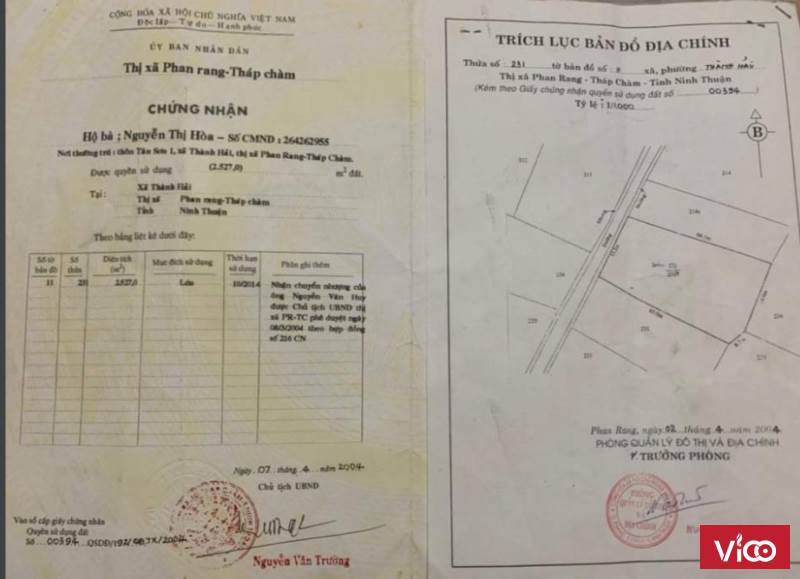 CỘNG HÒA XÃ HỘI CHỦ NGHĨA VIỆT NAM
Độc lập — Tự do — Hạnh phúc
ỦY BAN NHÂN DÂN
Thị xã Phan rang-Tháp chàm
CHỨNG NHẬN
Hộ bà ; Nguyễn Thị Hòa – Số CMND : 264262955
Nơi thường trú : thôn Tân Sơn 1, xã Thành Hải, thị xã Phan Rang-Tháp Chàm.
Được quyền sử dụng (2.527,0) m² đất.
Tại : Xã Thành Hải
Thị xã Phan rang-Tháp chàm
Tỉnh Ninh Thuận
Theo bảng liệt kê dưới đây:
Số tờ bản đồ Số thửa Diện tích (m²) Mục đích sử dụng Thời hạn sử dụng Phần ghi thêm
11 231 2.527,0 Lúa 10/2014 Nhận chuyển nhượng của
ông Nguyễn Văn Huy
được Chủ tịch UBND thị
xã PR-TC phê duyệt ngày
08/3/2004 theo hợp đồng
số 216 CN
Ngày 07 tháng 4 năm 2004
Chủ tịch UBND
Vào sổ cấp giấy chứng nhận
Quyền sử dụng đất
Số 00394 QSDĐ/192/
Nguyễn Văn Trường
TRÍCH LỤC BẢN ĐỒ ĐỊA CHÍNH
Thửa số : 231 từ bản đồ số xã, phường THÀNH HẢI
Thị xã Phan Rang - Tháp Chàm - Tỉnh Ninh Thuận
(Kèm theo Giấy chứng nhận quyền sử dụng đất số 00394)
Tỷ lệ : 1/1000
B
212
213
214
231
Phan Rang, ngày 02 tháng 4 năm 2004
PHÒNG QUẢN LÝ ĐÔ THỊ VÀ ĐỊA CHÍNH
TRƯỞNG PHÒNG
PHÒNG
VICO